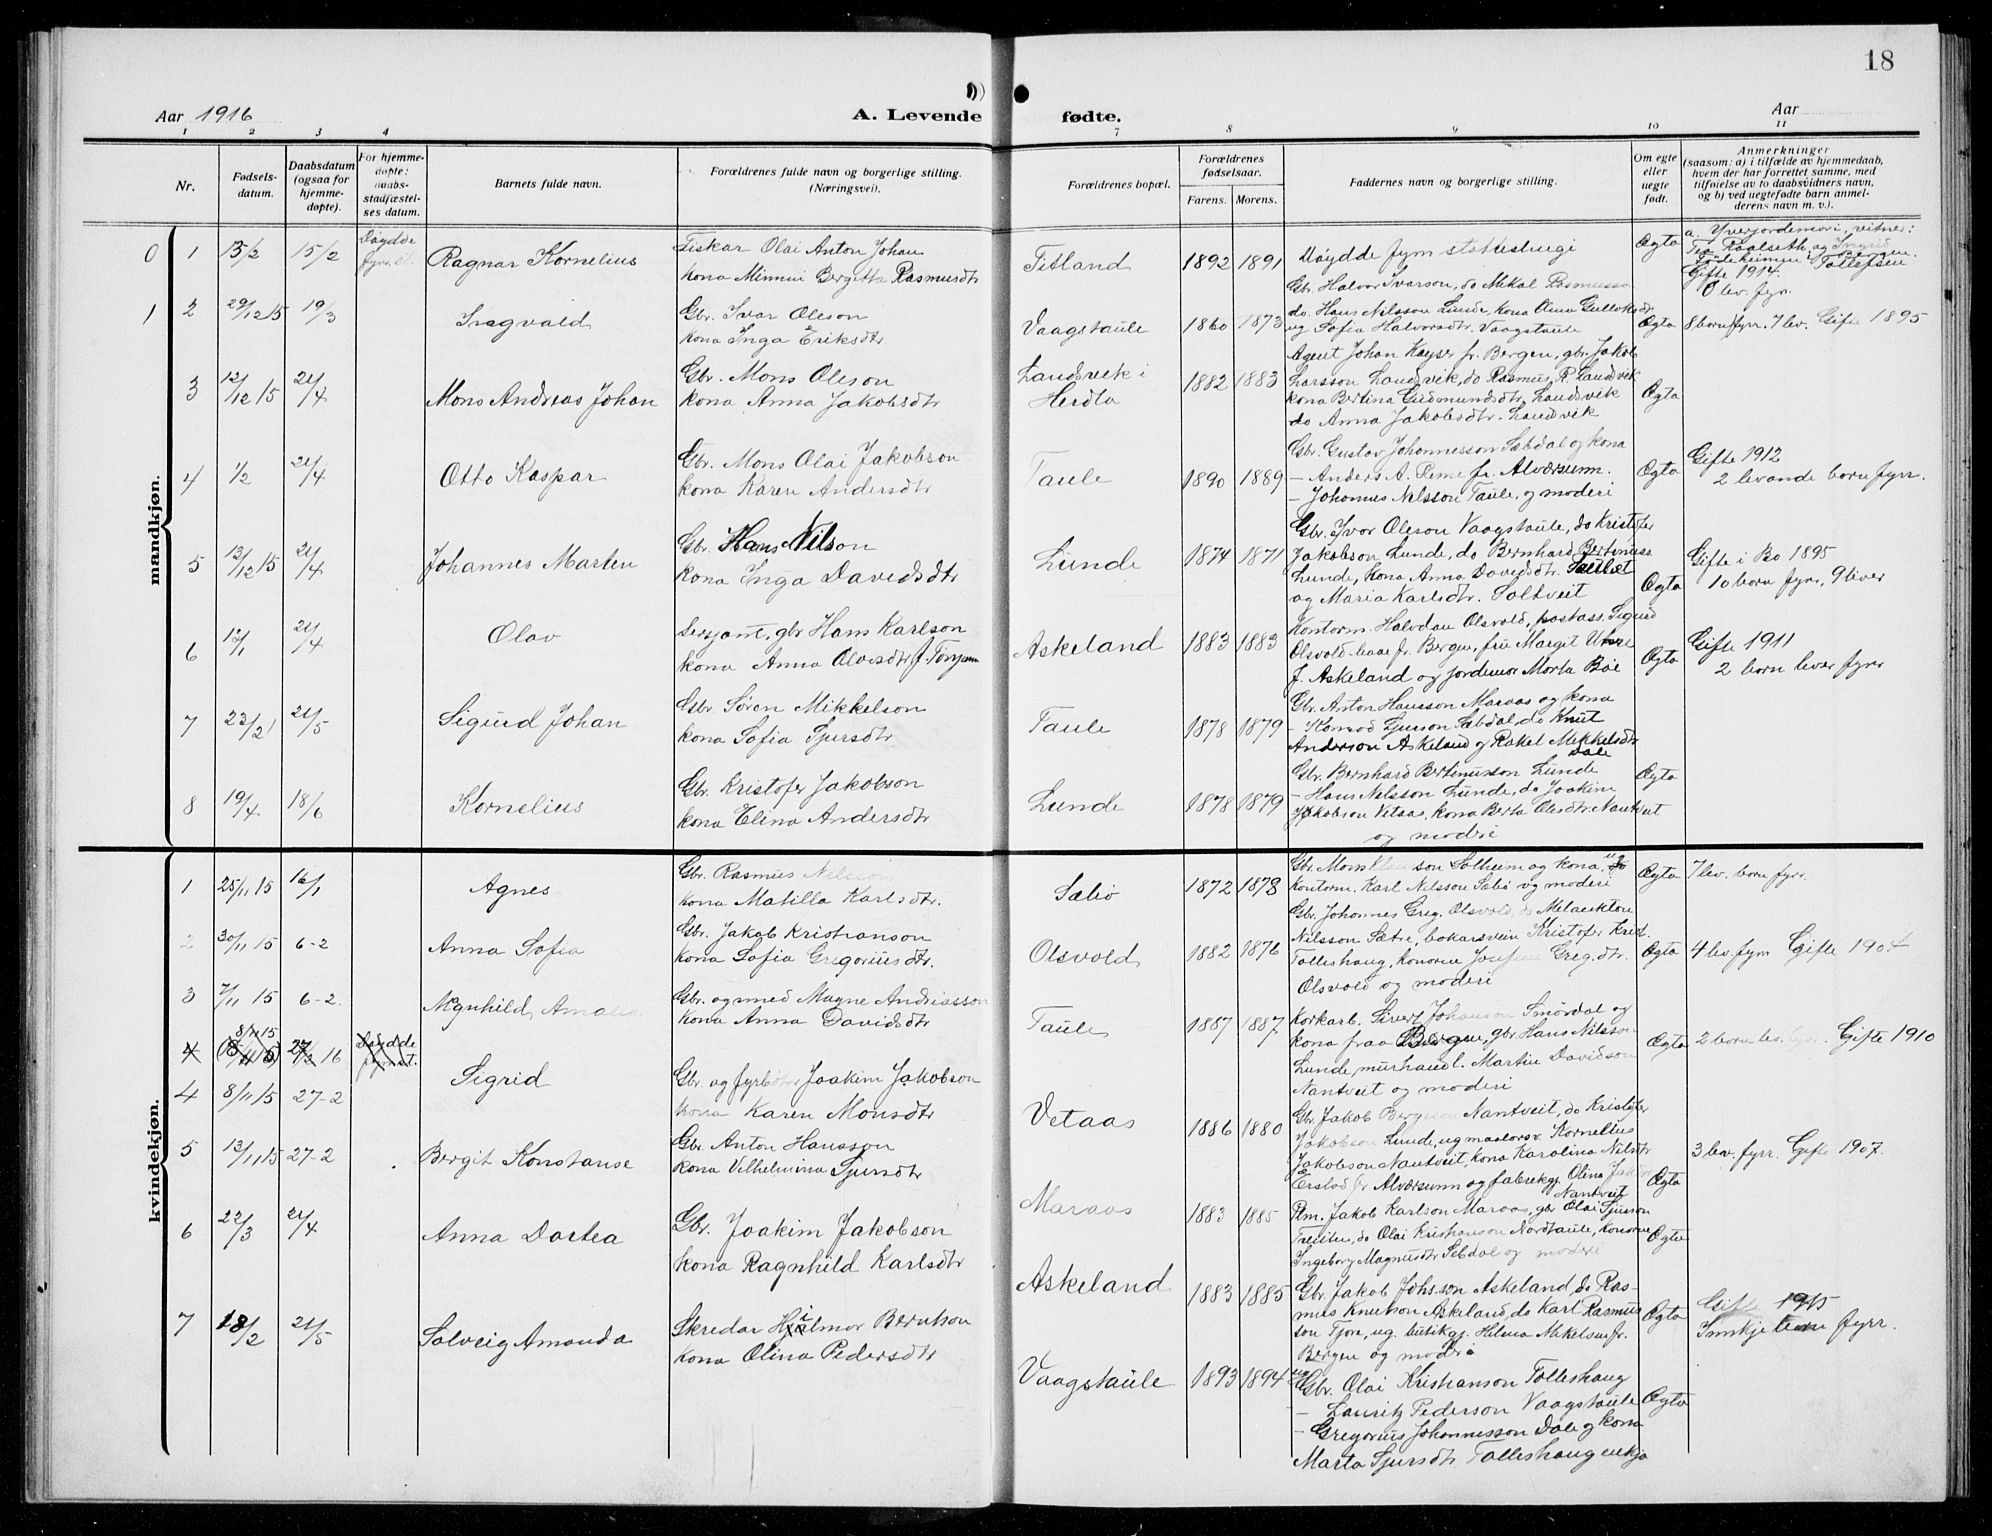 18
Aar 1916
A. Levende
fødte.
Aar
1
2
3
4
7
8
9
10
11
Nr.
Fødsels-
datum.
Daabsdatum
(ogsaa for
hjemme-
døpte).
For hjemme-
døpte:
daabs-
stadfæstel-
ses datum.
Barnets fulde navn.
Forældrenes fulde navn og borgerlige stilling.
(Næringsvei).
Forældrenes bopæl.
Forældrenes
fødselsaar.
Farens.
Morens.
Faddernes navn og borgerlige stilling.
Om egte
eller
uegte
født.
Anmerkninger
(saasom: a) i tilfælde av hjemmedaab,
hvem der har forrettet samme, med
tilføielse av to daabsvidners navn,
og b) ved uegtefødte barn anmel-
derens navn m. v.).
mandkjøn.
0 1 13/2 15/2 Døydde
Ragnar Kornelius
Fiskar Olai Anton Johan
kona Minni Bergitta Rasmusdtr
Titland 1892 1891
Døydde fyrr stattestingi
Ægta
Gifte 1914.
0 lev. fyrr
1 2 29/12 15 19/3
Ingvald
Gbr. Ivar Oleson
kona Inga Eriksdtr
Vaagstaule 1860 1873
Gbr. Halvor Ivarson, do Mikal Rasmusson
do. Hans Nilsson Lunde, kona Olina Gulleiksdtr
ug Sofia Halvorsdtr. Vaagstaule
Ægta
8 born fyrr. 7 lev. Gifte 1895
3 12/12 15 24/4
Mons Andreas Johan
Gbr. Mons Oleson
kona Anna Jakobsdtr
Landsvik i
Herdla
1882 1883
Agent Johan Kayser fr. Bergen, gbr. Jakob
Larsson Landsvik, do Rasmus R. Landsvik
kona Bertina Gudmundsdtr. Landsvik
do Anna Jakobsdtr. Landsvik
Ægta
4 1/2 24/4
Otto Kaspar
Gbr. Mons Olai Jakobson
kona Karen Andersdtr
Taule 1890 1889
Gbr. Gustav Johannesson Sæbdal og kona
- Anders A. Reme fr. Alværsunn.
- Johannes Nilsson Taule, og moderi
Ægta
Gifte 1912
2 levande born fyrr.
5 13/12 15 24/4
Johannes Marten
Gbr. Hans Nilson
kona Inga Davidsdtr
Lunde 1874 1871
Gbr. Ivor Oleson Vaagstaule, do Kristofer
Jakobson Lunde, do Bernhard Bertinuss.
Lunde, kona Anna Davidsdtr.
og Maria Karlsdtr. Soltveit
Ægta
Gifte i Bo 1895
10 born fyrr, 9 liver
6 12/1 24/4
Olav
Sersjant, gbr Hans Karlson
kona Anna Olvesdtr
Askeland 1883 1883
Kontorm. Halvdan Olsvold, postass. Sigurd
Olsvold baae fr. Bergen, frú Margit
f. Askeland og jordmor Marta Bøe
Ægta
Gifte 1911
2 born lever fyrr
7 22/2 21/5
Sigurd Johan
Gbr. Søren Mikkelson
kona Sofia Sjursdtr
Taule 1878 1879
Gbr. Anton Hansson Maraas og kona
- Konrad Sjurson Sæbdal, do Knut
Anderson Askeland og Rakel Mikkelsdtr
Dale
Ægta
8 19/4 18/6
Kornelius
Gbr. Kristofer Jakobson
kona Elina Andersdtr
Lunde 1878 1879
Gbr. Bernhard Bertinusson Lunde
- Hans Nilsson Lunde, do Joakim
Jakobson Vetaas, kona Berta Olesdtr. Nautveit
og moderi
kvindekjøn.
1 25/11 15 16/1
Agnes
Gbr. Rasmus Nilsson
kona Matilla Karlsdtr.
Sæbø 1872 1878
Gbr. Mons son Solheim og kona
Kontorm. Karl Nilsson Sæbø og moderi
Ægta
7 lev. born fyrr.
2 30/11 15 6-2
Anna Sofia
Gbr. Jakob Kristianson
kona Sofia Gregoriusdtr.
Olsvold 1882 1876
Gbr. Johannes Greg. Olsvold, do Melankton
Nilsson Sætre, bakarsvein Kristofer Krist.
Tolleshaug, konorne Josefine Greg.dtr.
Olsvold og moderi
Ægta
4 lev. fyrr Gifte 1904
3 7/11 15 6-2.
Magnhild Amalia
Gbr. og smed Magne Andriasson
kona Anna Davidsdtr
Taule 1887 1887
Korkarb. Sivert Johanson Smørdal og
kona fraa Bergen, gbr Hans Nilsson
Lunde, murhandl. Martin Davidson
Nautveit og moderi
Ægta
2 born lev. fyrr. Gifte 1910
4
Døydde
4 8/11 15 27-2
Sigrid
Gbr. og fyrbøtar Joakim Jakobson
kona Karen Monsdtr
Vetaas 1886 1880
Gbr. Jakob Nautveit, do Kristofer
Jakobson Lunde, ug. maalarsv. Kornelius
Jakobson Nautveit, kona Karolina Nilsdtr
Alværsunn og fabrikgj. Olina
Nautveit
Ægta
3 lev. fyrr. Gifte 1907.
5 13/11 15 27-2
Bergit Konstanse
Gbr. Anton Hansson
kona Vilhelmina Sjursdtr
Maraas 1883 1885
Jakob Karlson Maraas, gbr Olai Sjurson
do Olai Kristianson Nordtaule, konorne
Ingeborg Magnusdtr Sebdal og moderi
Ægta
6 22/3 24/4
Anna Dortea
Gbr. Joakim Jakobson
kona Ragnhild Karlsdtr
Askeland 1883 1885
Gbr. Jakob Johs.son Askeland, do Ras-
mus Knutson Askeland, do Karl Rasmus
son Fjore, ug. butikgj. Helena Mikelsen fr.
Bergen og moderi
Ægta
Gifte 1915
fyrr.
7 18/2 21/5
Solveig Amanda
Skredar Hilmor Berntson
kona Olina Pedersdtr
Vaagstaule 1893 1894
Gbr. Olai Kristianson Tolleshaug
- Lauritz Pederson Vaagstaule
- Gregorius Johannesson Dale og kona
Marta Sjursdtr Tolleshaug enkja
Ægta